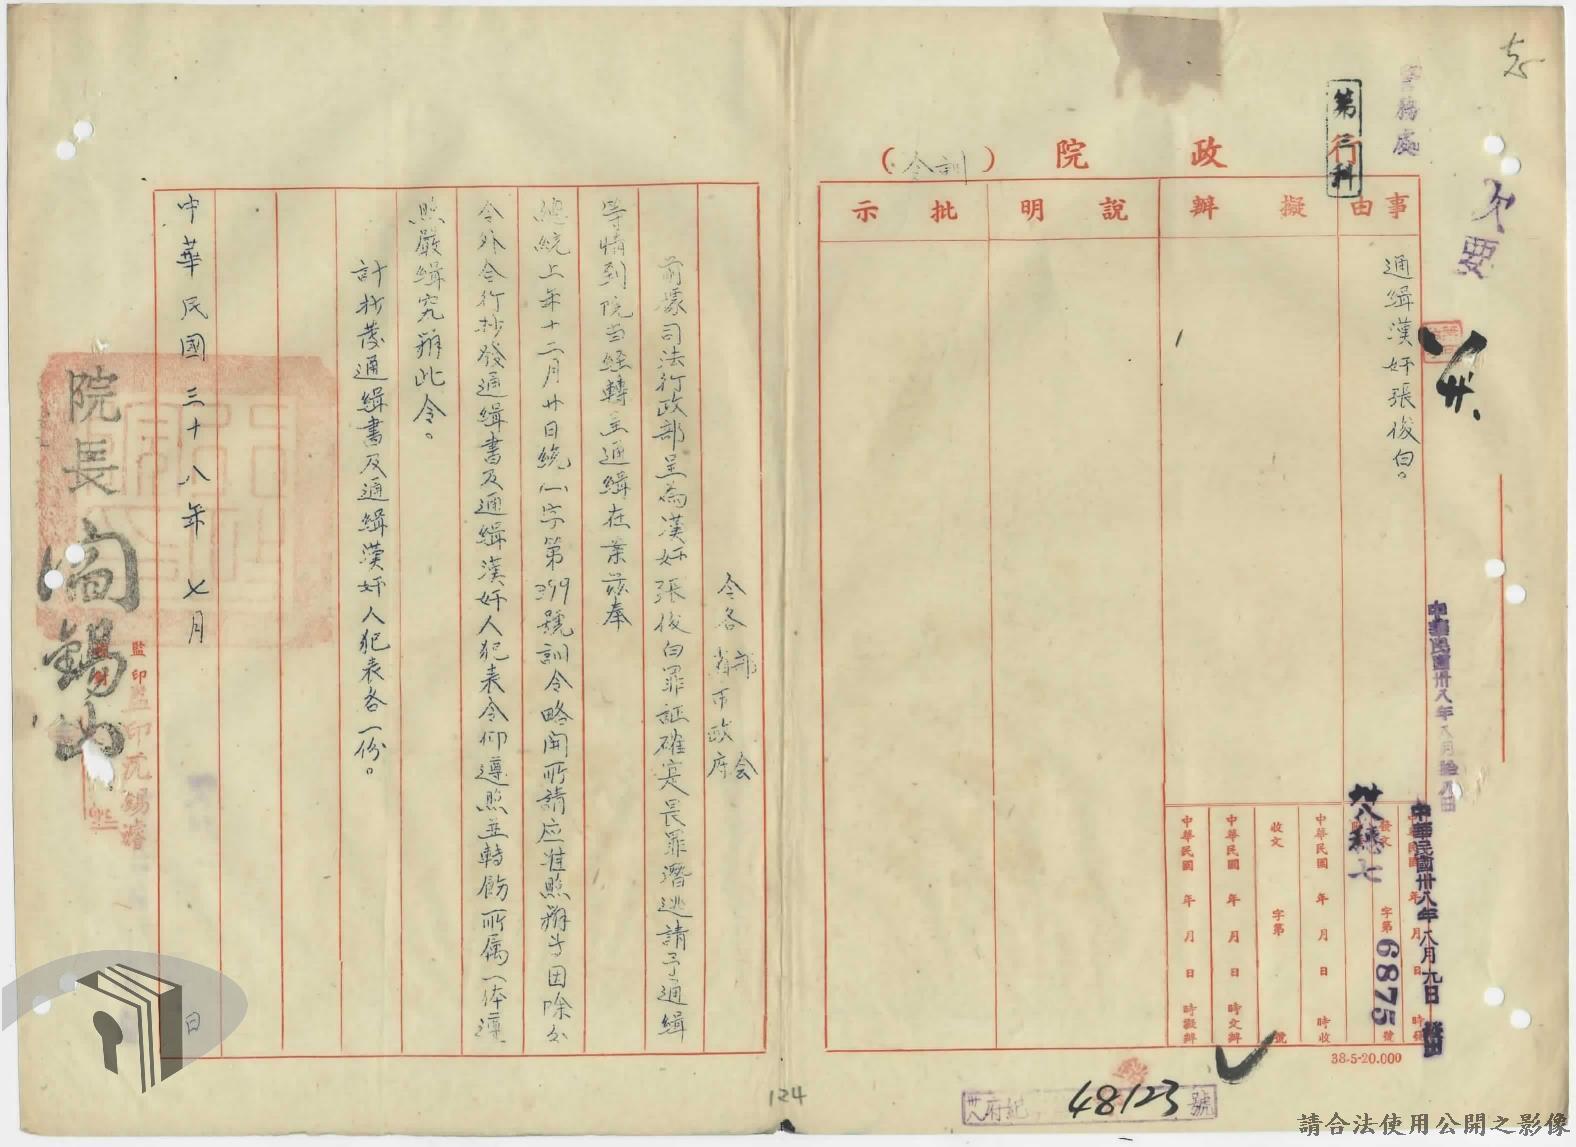 志
警務處
第三科
行政院（訓令）
事由
擬辦
說明
批示
通緝漢奸張俊白。
中華民國卅八年八月拾九日
中華民國卅八年八月九日
發文
字第6875號
卅八穗七
中華民國 年 月 日 時收
收文 字第 號
中華民國 年 月 日 時交辦
中華民國 年 月 日 時擬辦
38-5-20.000
卅八府紀 48123 號
令各部会
省市政府
前據司法行政部呈為漢奸張俊白罪証確寔畏罪潛逃請予通緝
等情到院当經轉呈通緝在案茲奉
總統上年十二月廿日統(一)字第399號訓令略開所請应准照辦等因除分
令外合行抄發通緝書及通緝漢奸人犯表令仰遵照並轉飭所属一体遵
照嚴緝究辦此令。
計抄發通緝書及通緝漢奸人犯表各一份。
中華民國三十八年七月 日
院長閻錫山
監印
監印沈錫濬
124
請合法使用公開之影像